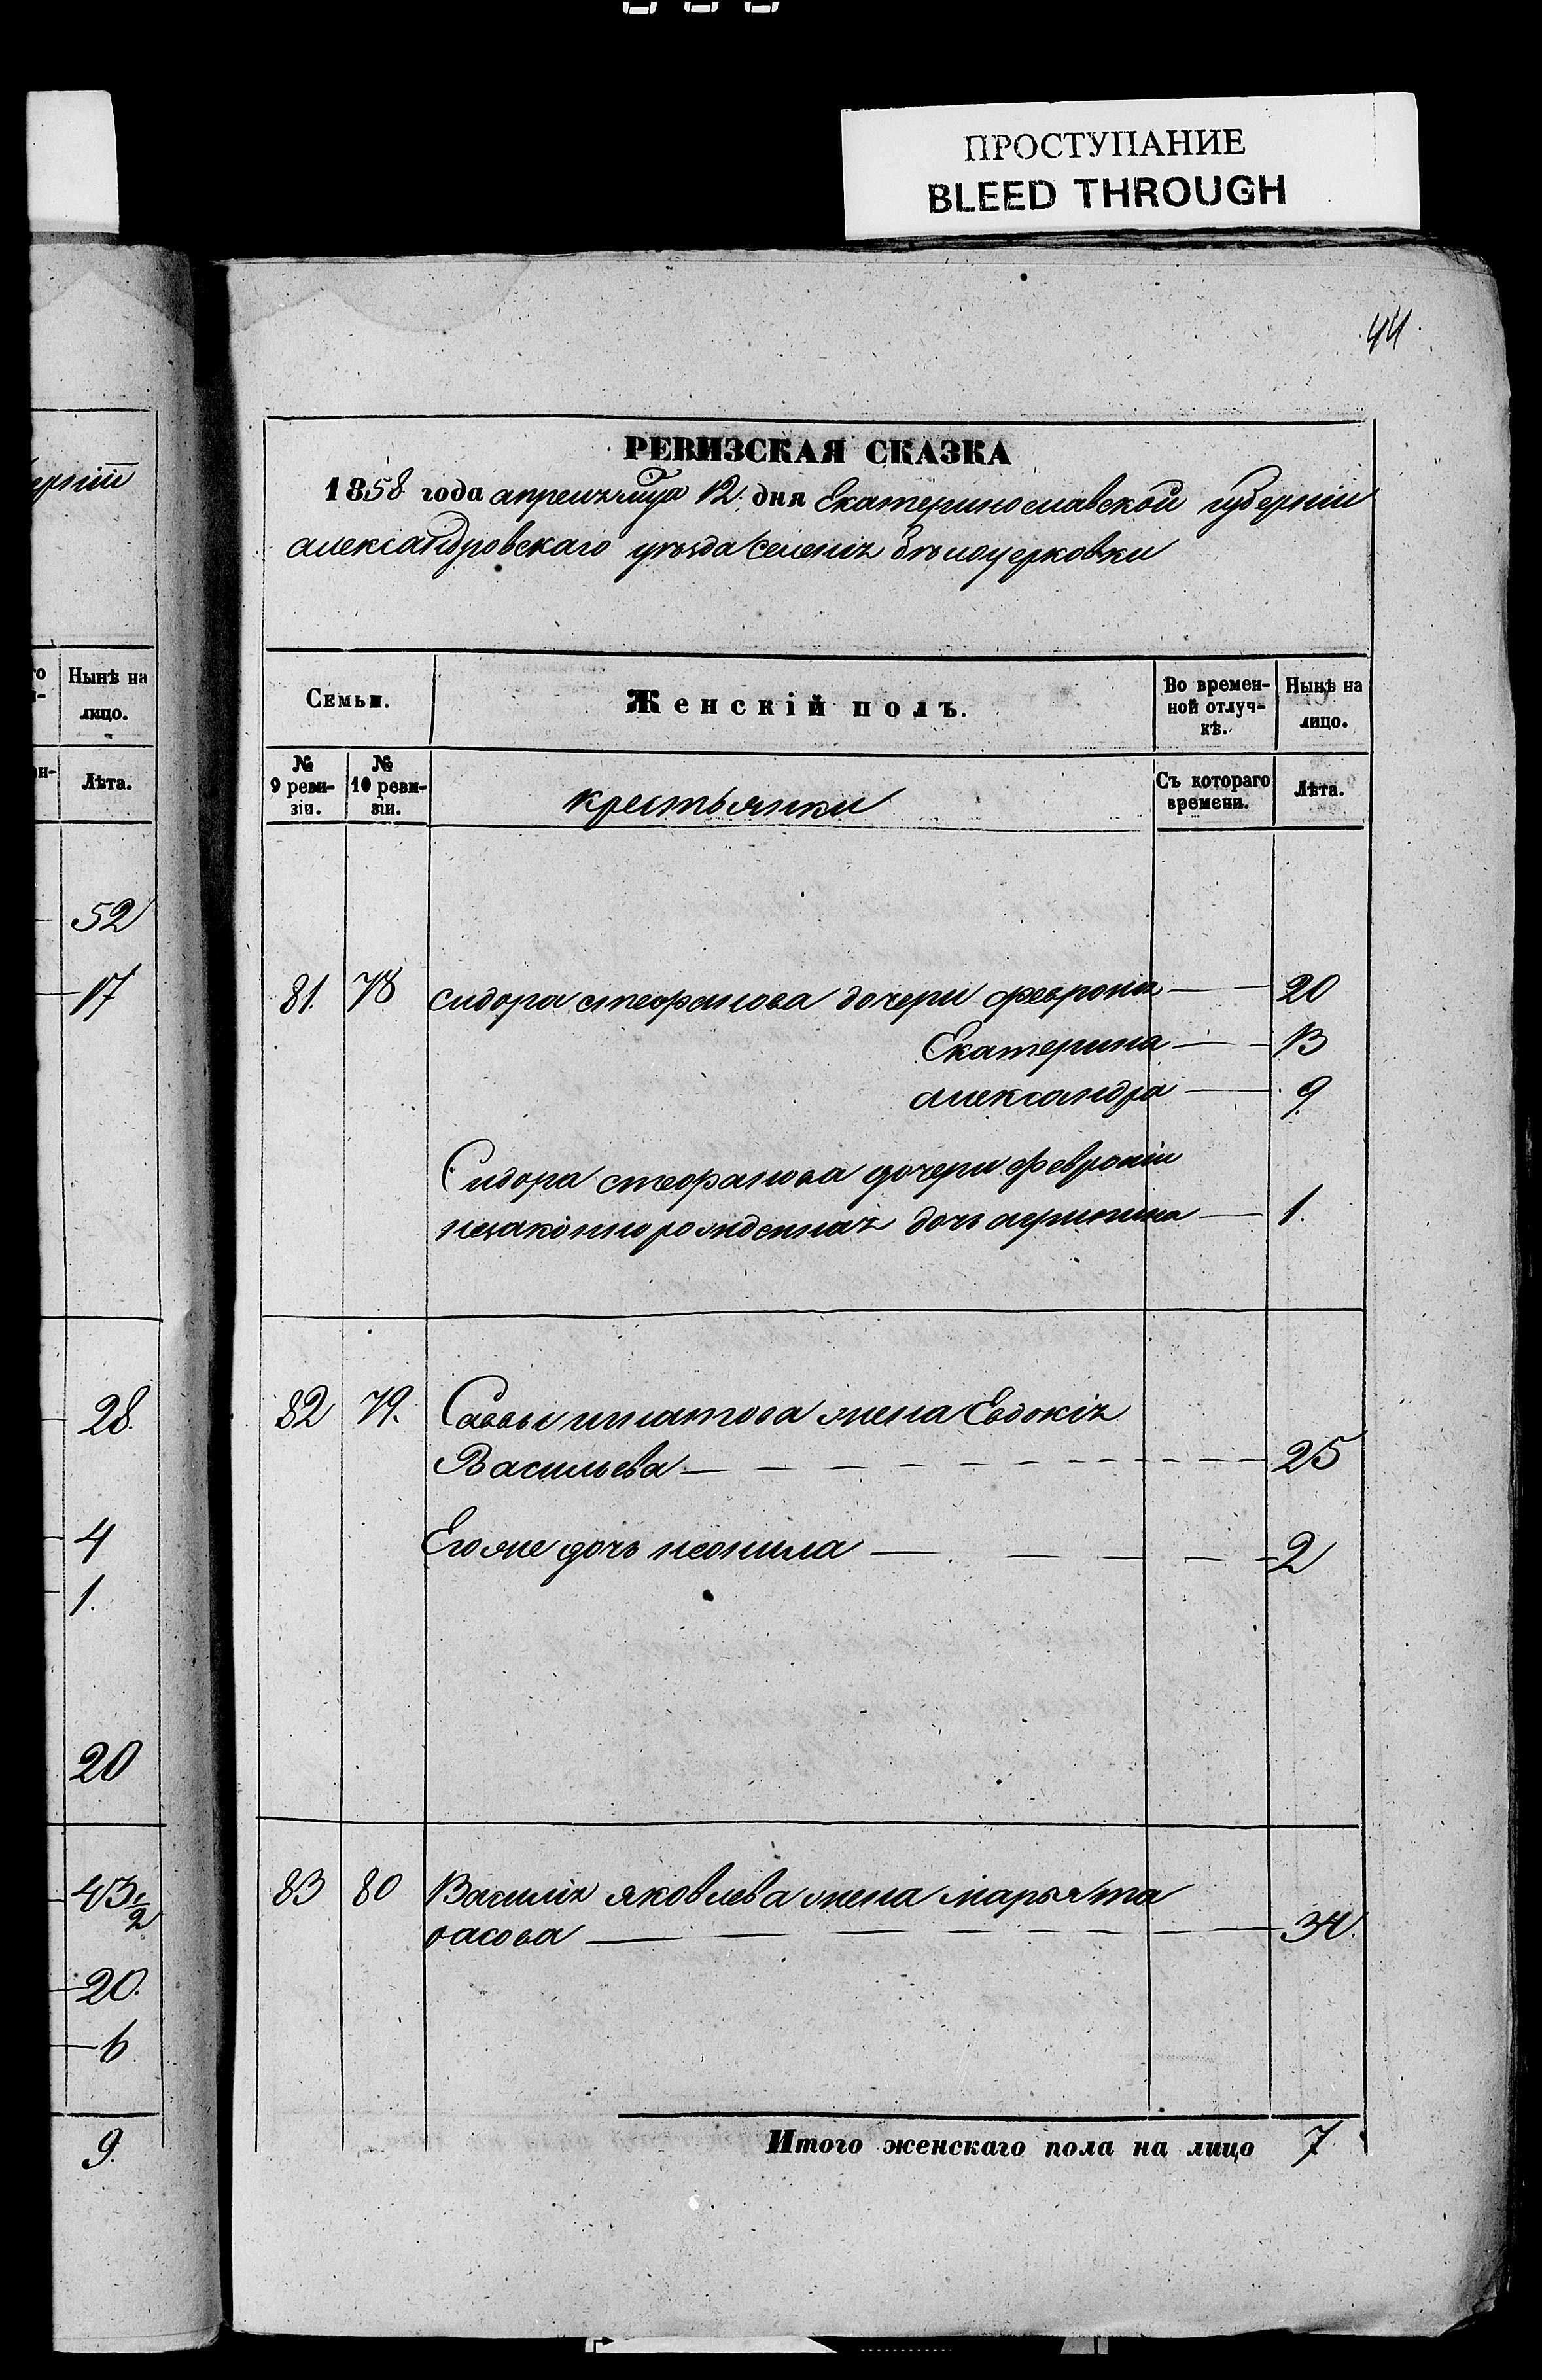 ПРОСТУПАНИЕ
BLEED THROUGH
44.
РЕВИЗСКАЯ СКАЗКА
1858 года апреля мца 12 дня Екатеринославской губерніи
александровскаго уезда Селенія белоцерковки
ерніи
Нынѣ на
лицо.
Лѣта.
52
17
28.
4
1.
20
43 1/2
20.
6
9.
Семьи.
Женскій полъ.
Во времен-
ной отлуч-
кѣ.
Нынѣ на
лицо.
№
9 реви-
зіи.
№
10 реви-
зіи.
крестьянки
Съ котораго
времени.
Лѣта.
81. 78 сидора стефанова дочери феврония 20
Екатерина 13
александра 9
Сидора стефанова дочери февроніи
незаконнорожденная дочь 1.
82 79. Саввы игнатова жена Евдокія
Васильева 25
Его же дочь неонила 2
83 80 Василія яковлева жена марья та
расова 34.
Итого женскаго пола на лицо 7